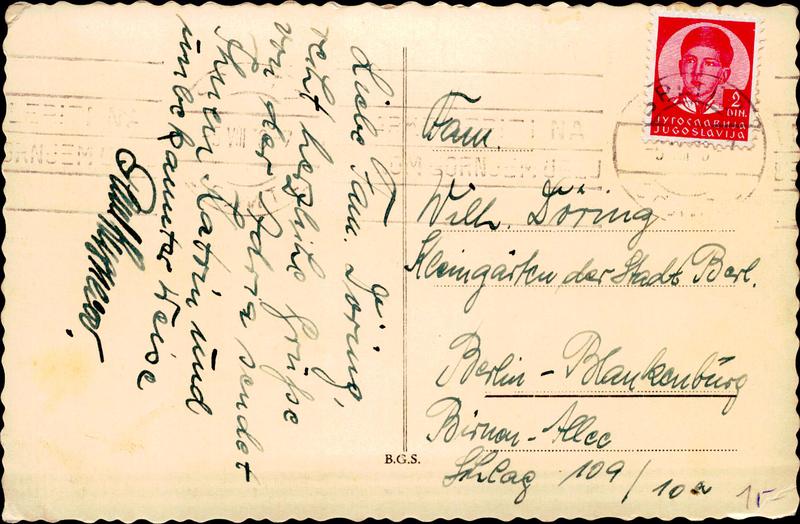 Liebe Fam. Döring,
recht herzliche Grüße
von der Adria sendet
Ihnen Katrin und
unbekannter Weise
Fam.
Wilh. Döring
Kleingärten der Stadt Berl.
Berlin-Blankenburg
Birnen-Allee
Schlag 109/10a
B.G.S.
2
DIN.
ЈУГОСЛАВИЈА
JUGOSLAVIJA